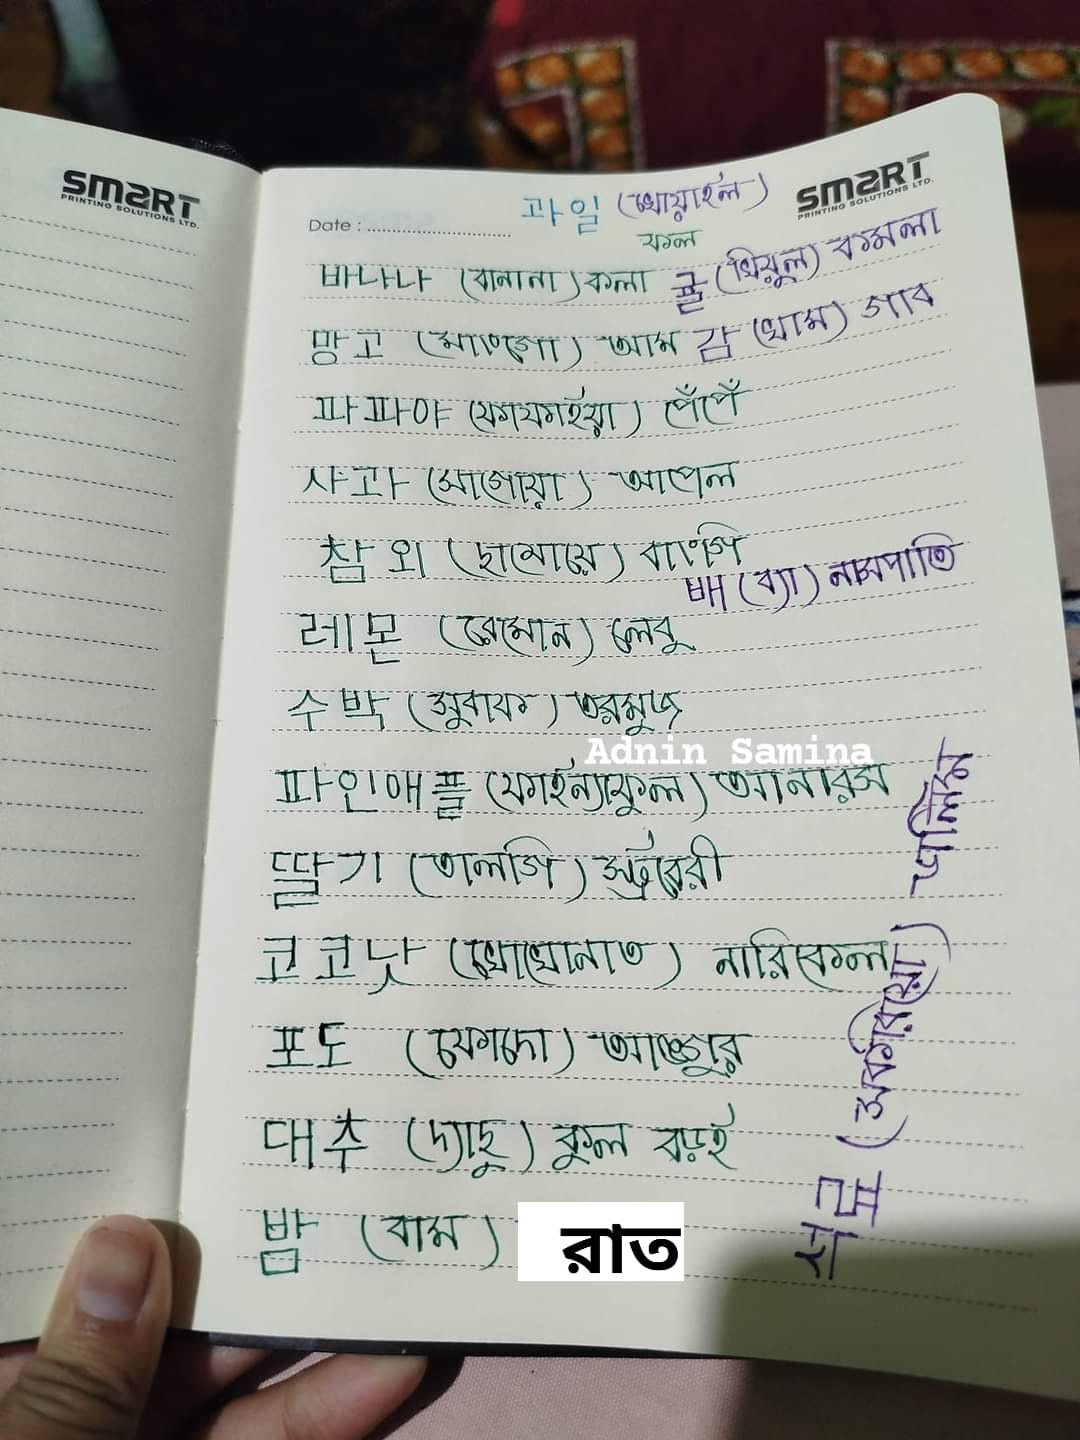 SMART
PRINTING SOLUTIONS LTD.
SMART
PRINTING SOLUTIONS LTD.
Date :
과일 (খোয়াইল)
ফল
바나나 (বানানা) কলা
귤 (খিয়ুল) কমলা
망고 (মাংগো) আম
감 (খাম) গাব
파파야 (ফাফাইয়া) পেঁপেঁ
사과 (সাগোয়া) আপেল
참외 (ছামোয়ে) বাংগি
배 (ব্যা) নাসপাতি
레몬 (রেমোন) লেবু
수박 (সুবাক) তরমুজ
Adnin Samina
파인애플 (ফাইন্যাফুল) আনারস
딸기 (তালগি) স্ট্রবেরী
코코낫 (খোখোনাত) নারিকেল
포도 (ফোদো) আঙ্গুর
대추 (দ্যাছু) কুল বড়ই
밤 (বাম) রাত
석류 (সকরিয়ো) ডালিম